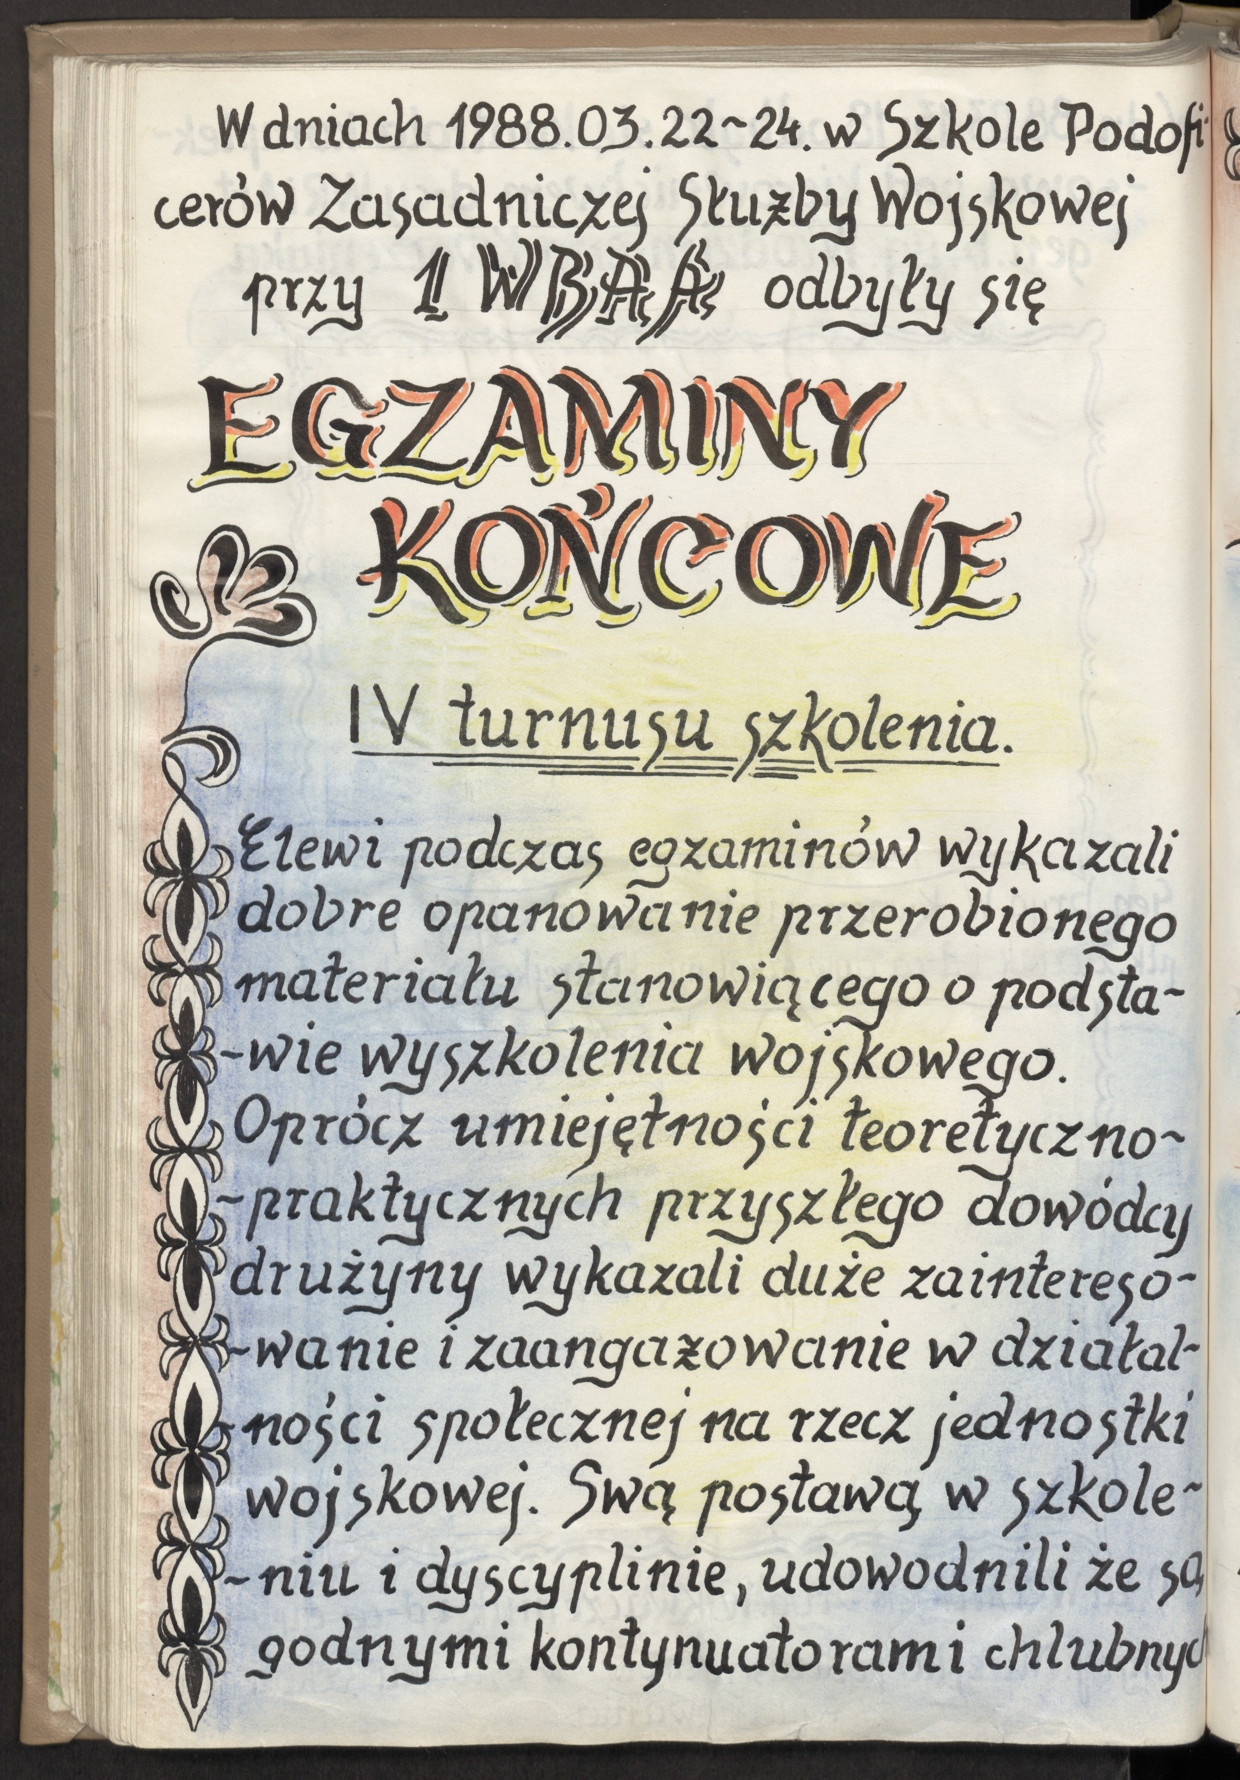 W dniach 1988.03.22~24. w Szkole Podofi-
cerów Zasadniczej Służby Wojskowej
przy 1 WBAA odbyły się
EGZAMINY
KOŃCOWE
IV turnusu szkolenia.
Elewi podczas egzaminów wykazali
dobre opanowanie przerobionego
materiału stanowiącego o podsta-
-wie wyszkolenia wojskowego.
Oprócz umiejętności teoretyczno-
-praktycznych przyszłego dowódcy
drużyny wykazali duże zaintereso-
-wanie i zaangażowanie w działal-
-ności społecznej na rzecz jednostki
wojskowej. Swą postawą w szkole-
-niu i dyscyplinie, udowodnili że są
godnymi kontynuatorami chlubnych